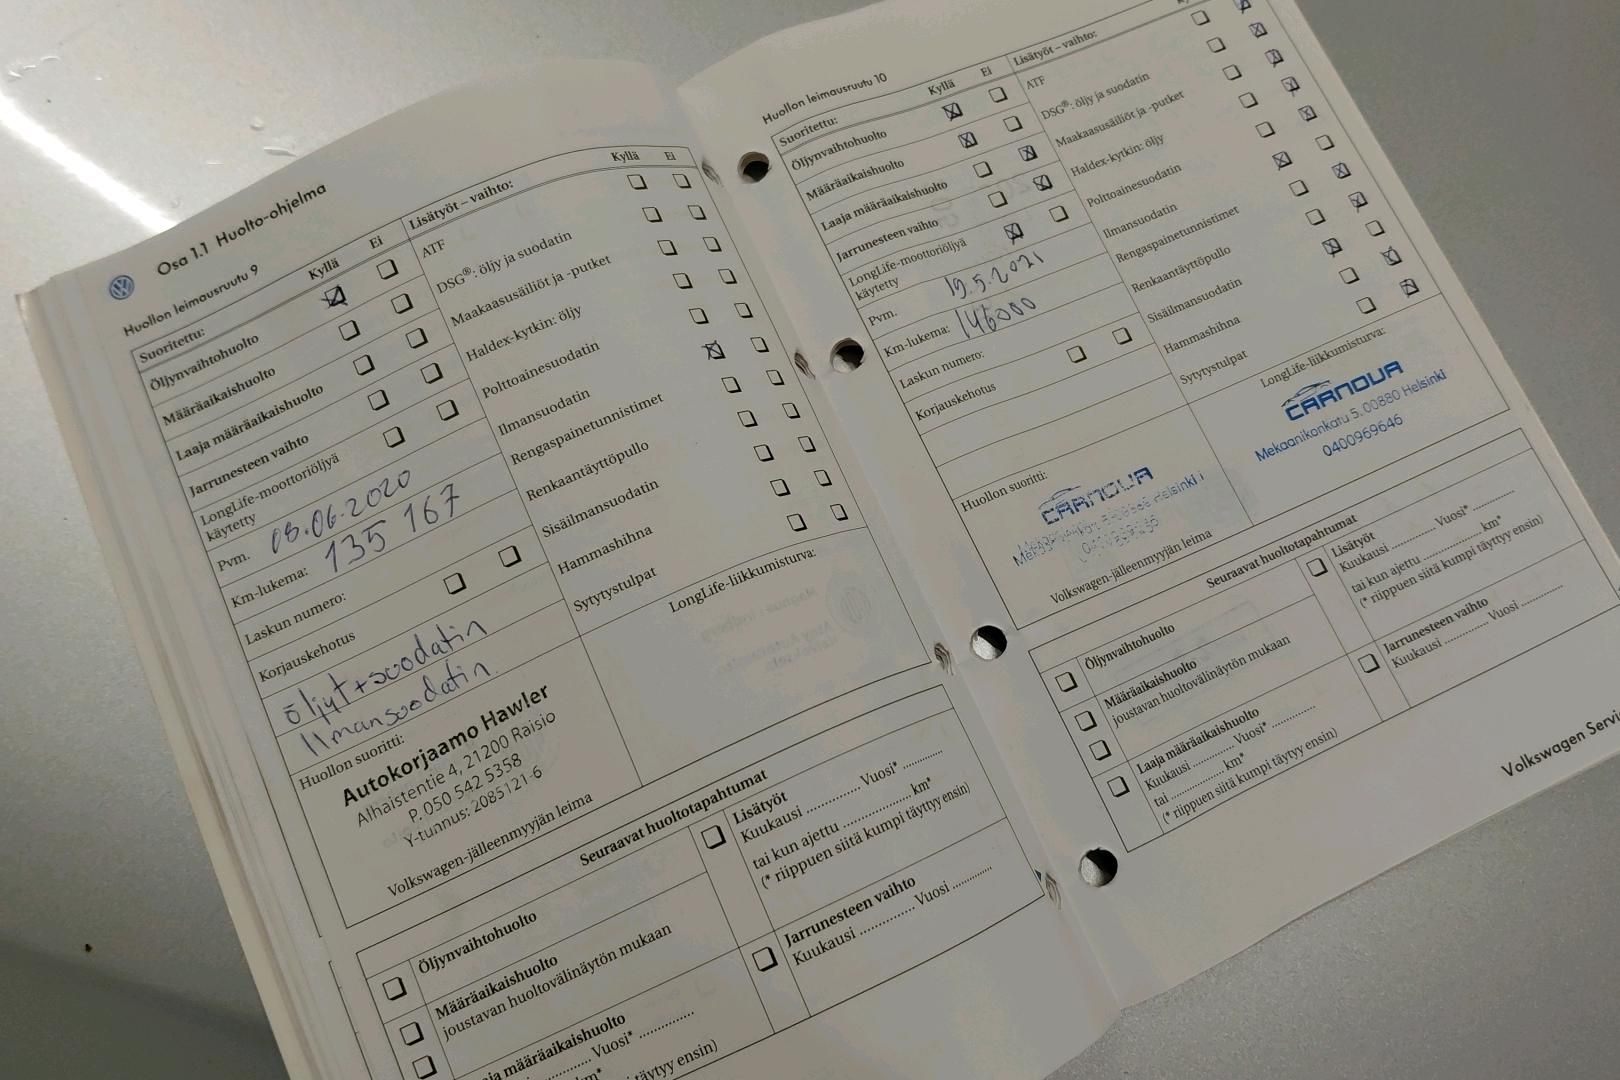 Osa 1.1 Huolto-ohjelma
Huollon leimausruutu 9
Suoritettu:
Kyllä
Ei
Öljynvaihtohuolto
Määräaikaishuolto
Laaja määräaikaishuolto
Jarrunesteen vaihto
LongLife-moottoriöljyä
käytetty
Pvm. 09.06.2020
Km-lukema: 135 167
Laskun numero:
Korjauskehotus
öljyt+suodatin
Ilmansuodatin.
Huollon suoritti:
Autokorjaamo Hawler
Alhaistentie 4, 21200 Raisio
P. 050 542 5358
Y-tunnus: 2085121-6
Volkswagen-jälleenmyyjän leima
Lisätyöt – vaihto:
Kyllä
Ei
ATF
DSG®: öljy ja suodatin
Maakaasusäiliöt ja -putket
Haldex-kytkin: öljy
Polttoainesuodatin
Ilmansuodatin
Rengaspainetunnistimet
Renkaantäyttöpullo
Sisäilmansuodatin
Hammashihna
Sytytystulpat
LongLife-liikkumisturva:
Seuraavat huoltotapahtumat
Öljynvaihtohuolto
Määräaikaishuolto
joustavan huoltovälinäytön mukaan
määräaikaishuolto
Vuosi*
km*
täytyy ensin)
Lisätyöt
Kuukausi ............... Vuosi* ..........
tai kun ajettu ............... km*
(* riippuen siitä kumpi täyttyy ensin)
Jarrunesteen vaihto
Kuukausi ............... Vuosi ..........
Huollon leimausruutu 10
Suoritettu:
Kyllä
Ei
Öljynvaihtohuolto
Määräaikaishuolto
Laaja määräaikaishuolto
Jarrunesteen vaihto
LongLife-moottoriöljyä
käytetty
Pvm. 19.5.2021
Km-lukema: 146000
Laskun numero:
Korjauskehotus
Huollon suoritti:
CARNOVA
Volkswagen-jälleenmyyjän leima
Lisätyöt – vaihto:
ATF
DSG®: öljy ja suodatin
Maakaasusäiliöt ja -putket
Haldex-kytkin: öljy
Polttoainesuodatin
Ilmansuodatin
Rengaspainetunnistimet
Renkaantäyttöpullo
Sisäilmansuodatin
Hammashihna
Sytytystulpat
LongLife-liikkumisturva:
CARNOVA
Mekaanikonkatu 5, 00880 Helsinki
0400969646
Seuraavat huoltotapahtumat
Öljynvaihtohuolto
Määräaikaishuolto
joustavan huoltovälinäytön mukaan
Laaja määräaikaishuolto
Kuukausi ............... Vuosi* ..........
tai ............... km*
(* riippuen siitä kumpi täytyy ensin)
Lisätyöt
Kuukausi ............... Vuosi* ..........
tai kun ajettu ............... km*
(* riippuen siitä kumpi täyttyy ensin)
Jarrunesteen vaihto
Kuukausi ............... Vuosi ..........
Volkswagen